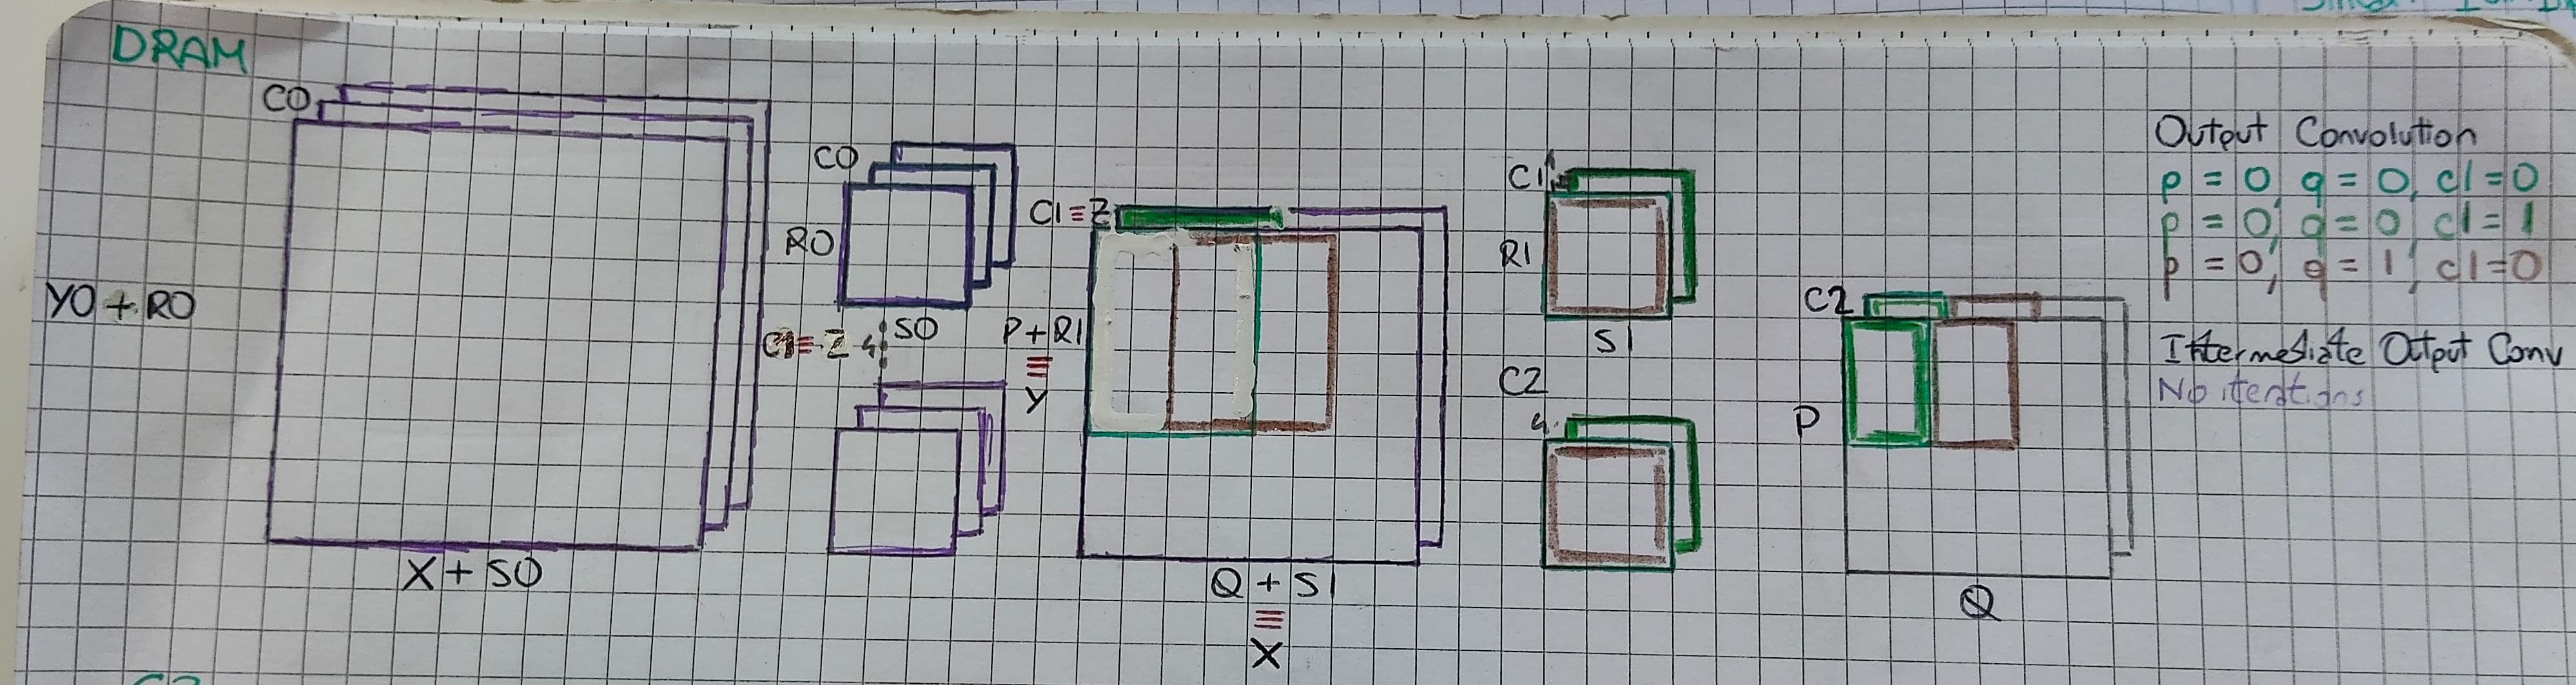 DRAM
C0
Y0 + R0
X + S0
C0
R0
S0
C1≡Z
C1≡Z
P + R1
≡
Y
Q + S1
≡
X
C1
R1
S1
C2
C2
P
Q
Output Convolution
p = 0, q = 0, c1 = 0
p = 0, q = 0, c1 = 1
p = 0, q = 1, c1 = 0
Intermediate Otput Conv
No iterations